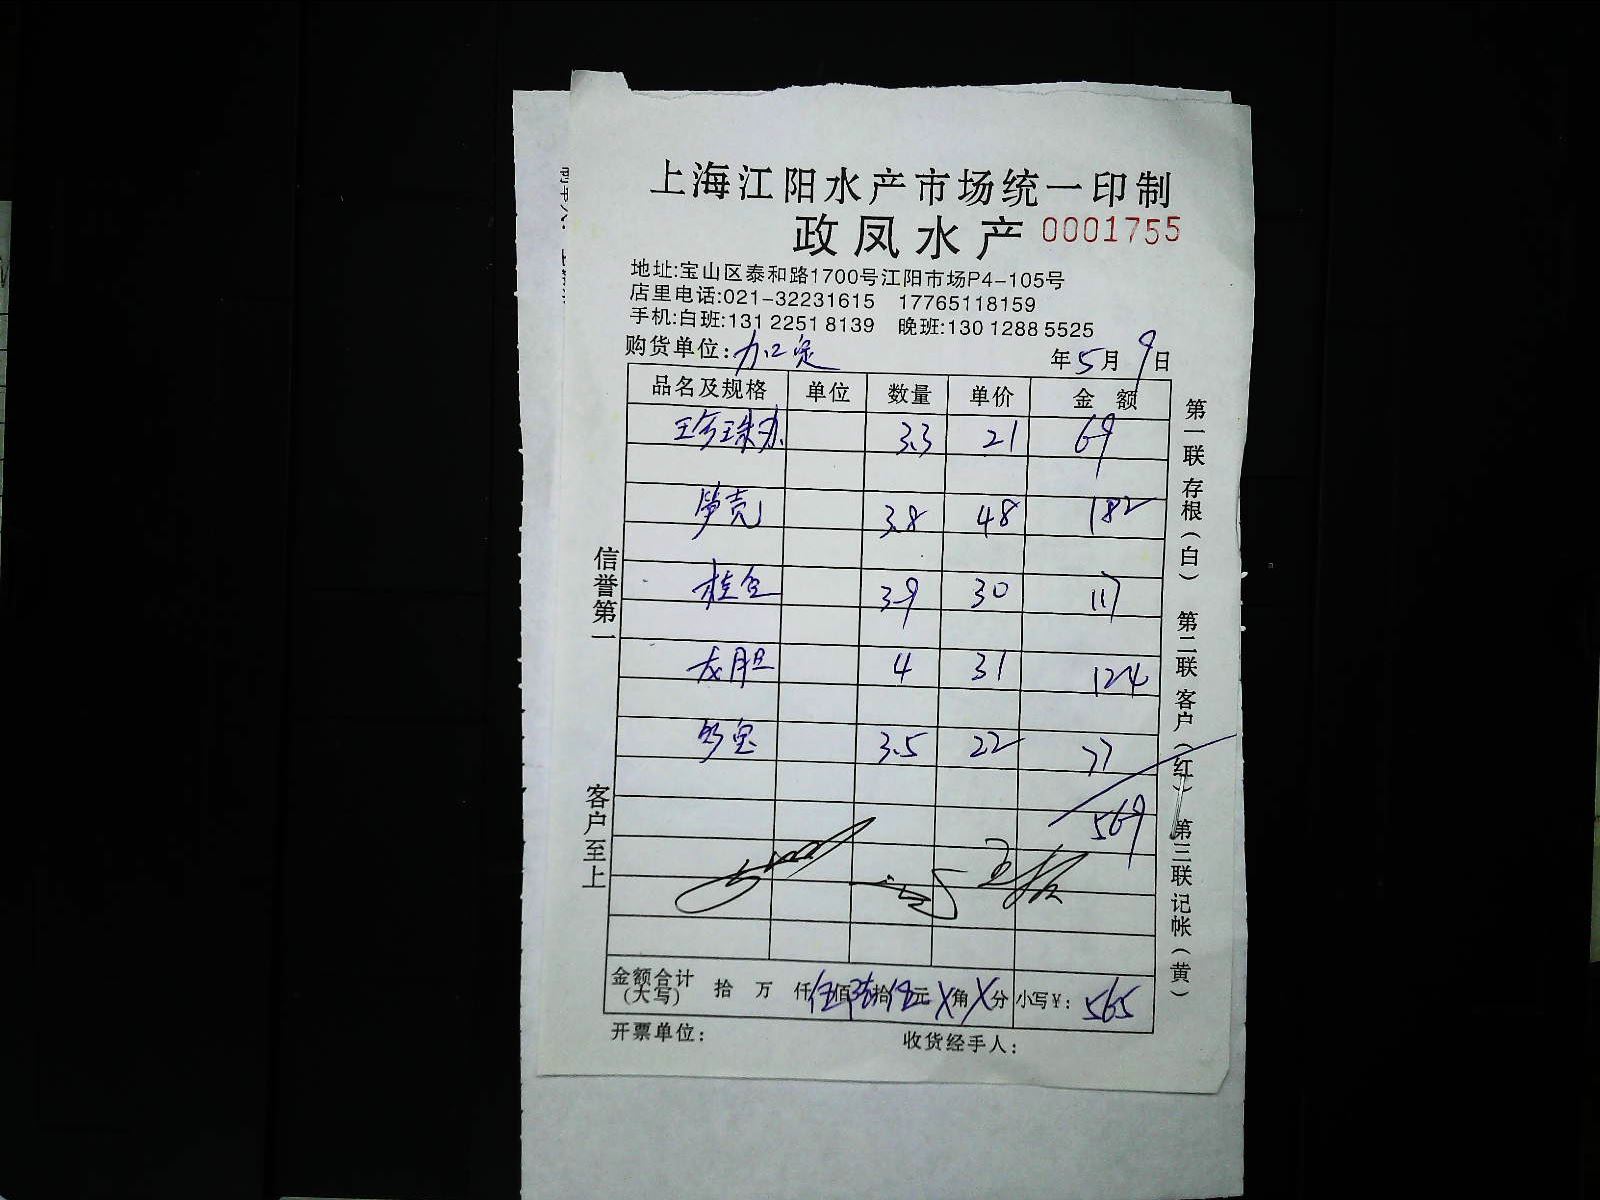 上海江阳水产市场统一印制
政凤水产 0001755
地址:宝山区泰和路1700号江阳市场P4-105号
店里电话:021-32231615 17765118159
手机:白班:131 2251 8139 晚班:130 1288 5525
购货单位:加定 年5月9日
品名及规格 单位 数量 单价 金额
珍珠 3.3 21 69
笋壳 3.8 48 182
桂鱼 3.9 30 117
龙胆 4 31 124
多宝 3.5 22 77
569
金额合计(大写) 拾 万 仟伍佰陆拾伍元X角X分 小写¥: 565
开票单位: 收货经手人:
信誉第一
客户至上
第一联 存根(白) 第二联 客户(红) 第三联 记帐(黄)